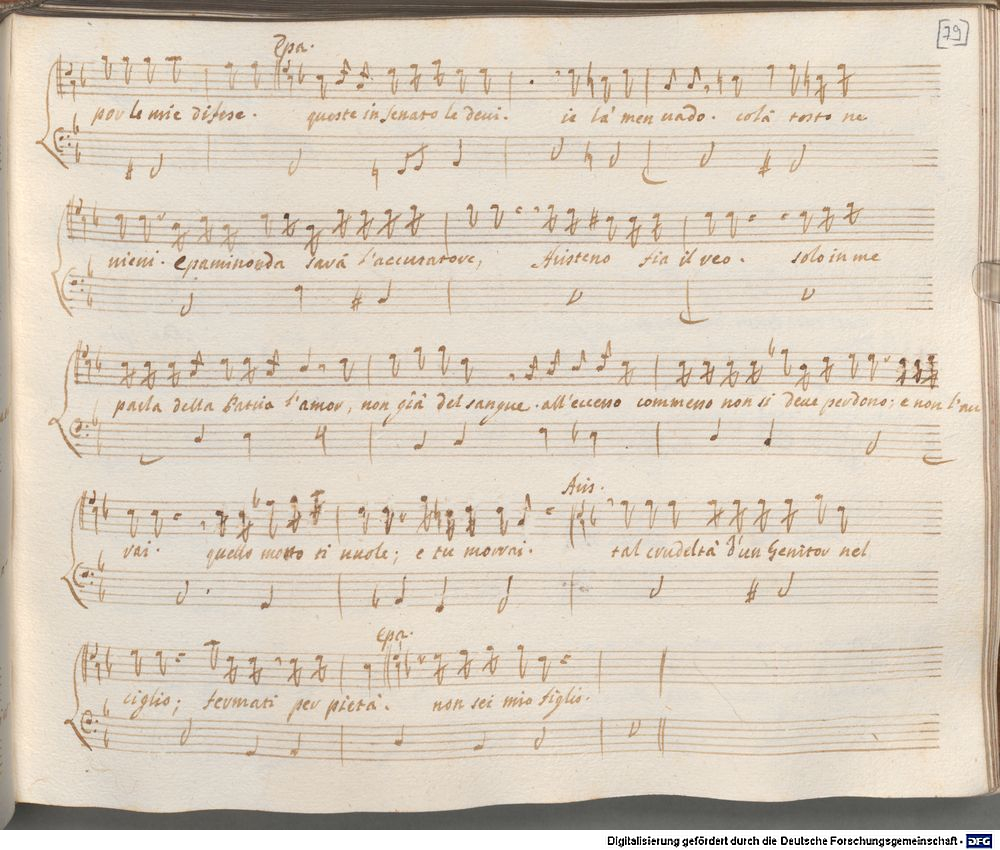 [79]
Epa.
por le mie difese. queste in senato le devi. ie là men vado. colà tosto ne
vieni. Epaminonda sarà l'accusatore, Aristeno sia il reo. solo in me
parla della Patria l'amor, non già del sangue. all'eccesso commesso non si deve perdono; e non l'au
Aris.
rai. quello morto ti vuole; e tu morrai. tal crudeltà d'un Genitor nel
Epa.
ciglio; fermati per pietà. non sei mio figlio.
Digitalisierung gefördert durch die Deutsche Forschungsgemeinschaft - DFG